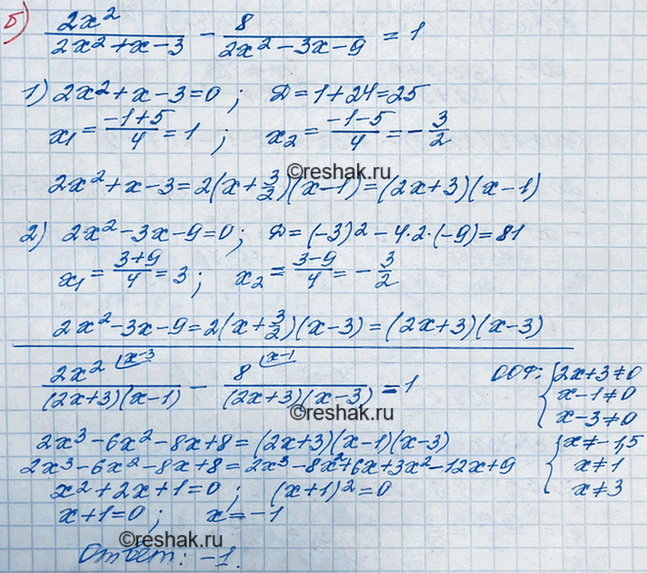 б) 2x²/(2x²+x-3) - 8/(2x²-3x-9) = 1
1) 2x²+x-3=0; Д=1+24=25
x₁=(-1+5)/4=1; x₂=(-1-5)/4=-3/2
©reshak.ru
2x²+x-3=2(x+3/2)(x-1)=(2x+3)(x-1)
2) 2x²-3x-9=0; Д=(-3)²-4·2·(-9)=81
x₁=(3+9)/4=3; x₂=(3-9)/4=-3/2
2x²-3x-9=2(x+3/2)(x-3)=(2x+3)(x-3)
2x² (x-3/ /((2x+3)(x-1)) - 8 (x-1/ /((2x+3)(x-3)) = 1
ООФ: {2x+3≠0
x-1≠0
x-3≠0
©reshak.ru
2x³-6x²-8x+8=(2x+3)(x-1)(x-3)
{x≠-1,5
2x³-6x²-8x+8=2x³-8x²+6x+3x²-12x+9
x≠1
x²+2x+1=0; (x+1)²=0
x≠3
x+1=0; x=-1
Ответ: -1.
©reshak.ru